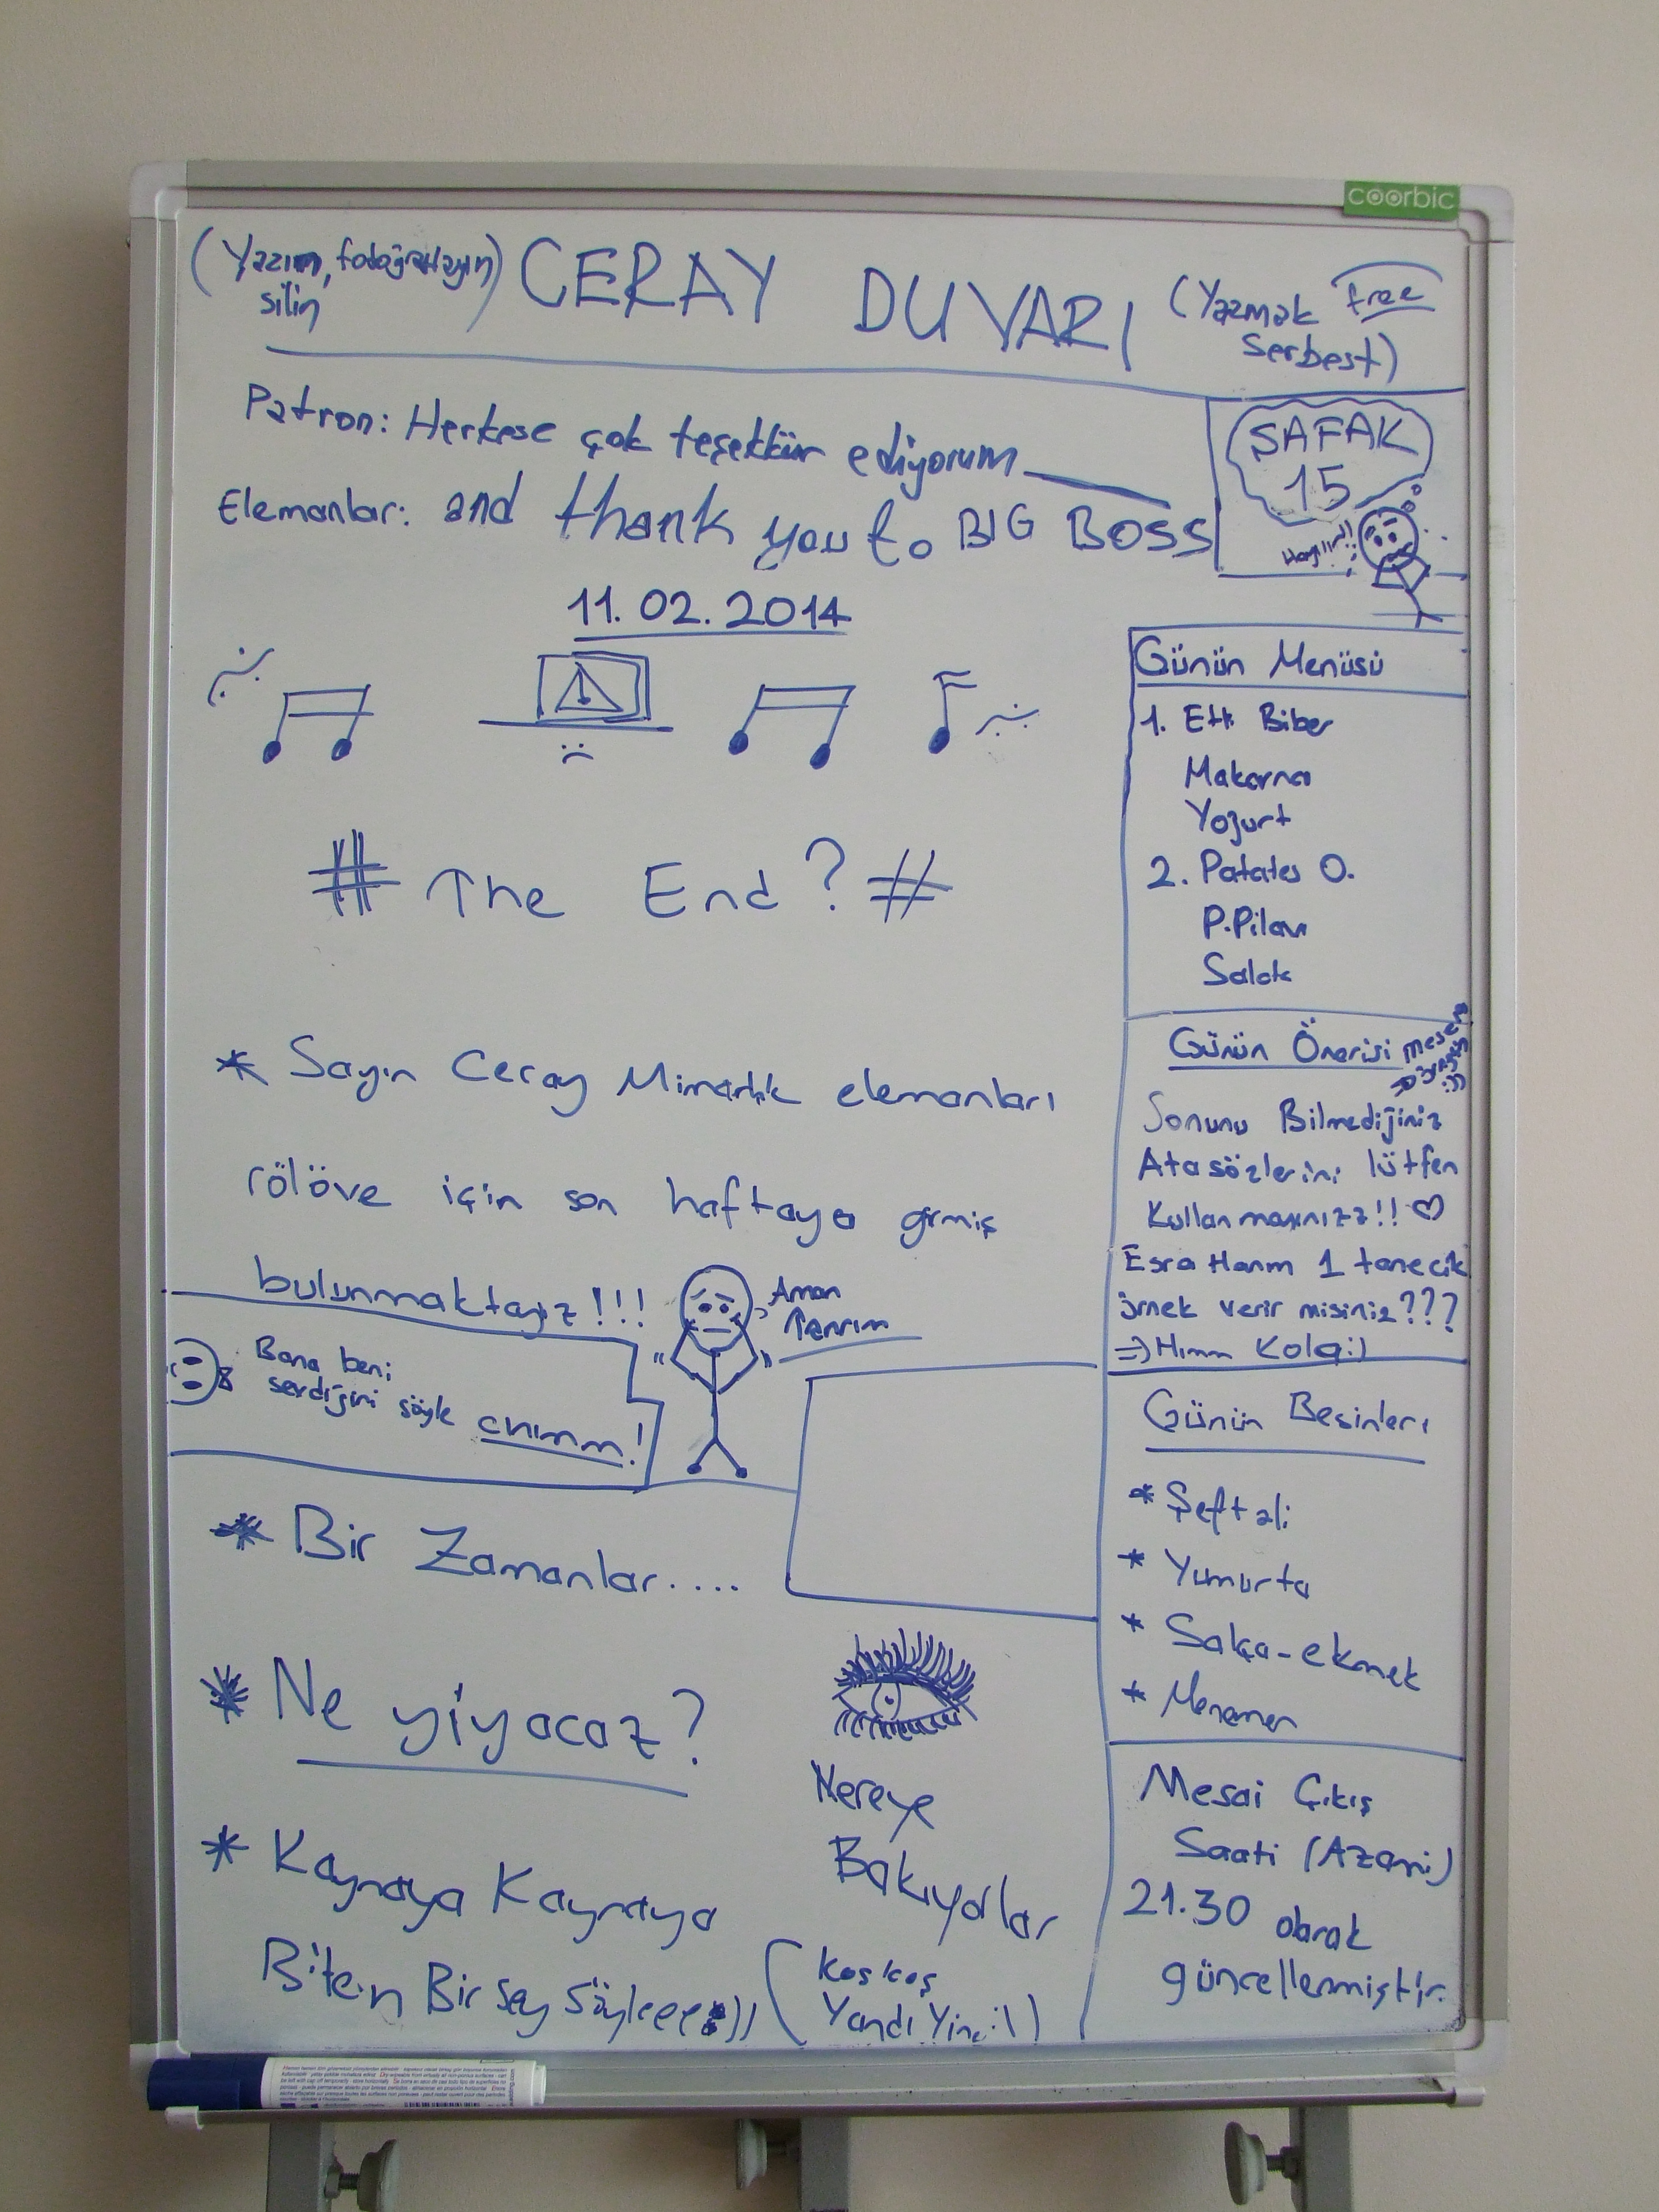 coorbic
(Yazın, fotoğraflayın)
silin
CERAY DUVARI
(Yazmak free
serbest)
Patron: Herkese çok teşekkür ediyorum
Elemanlar: and thank you to BIG BOSS
ŞAFAK
15
11.02.2014
# The End? #
Günün Menüsü
1. Etli Biber
Makarna
Yoğurt
2. Patates O.
P.Pilavı
Salata
* Sayın Ceray Mimarlık elemanları
rölöve için son haftaya girmiş
bulunmaktayız!!!
Aman
Tanrım
Bana beni
sevdiğini söyle cnımm!
Günün Önerisi
Sonunu Bilmediğiniz
Atasözlerini lütfen
Kullanmayınızz!! ♡
Esra Hanım 1 tanecik
örnek verir misiniz???
=> Hımm Kolay:)
Günün Besinleri
* Şeftali
* Yumurta
* Salça-ekmek
* Menemen
* Bir Zamanlar....
* Ne yiyacaz?
Nereye
Bakıyorlar
* Kaynaya Kaynaya
Biten Bir şey söyleee:))
(koş koş
Yandı Yine:))
Mesai Çıkış
Saati (Azami)
21.30 olarak
güncellenmiştir.